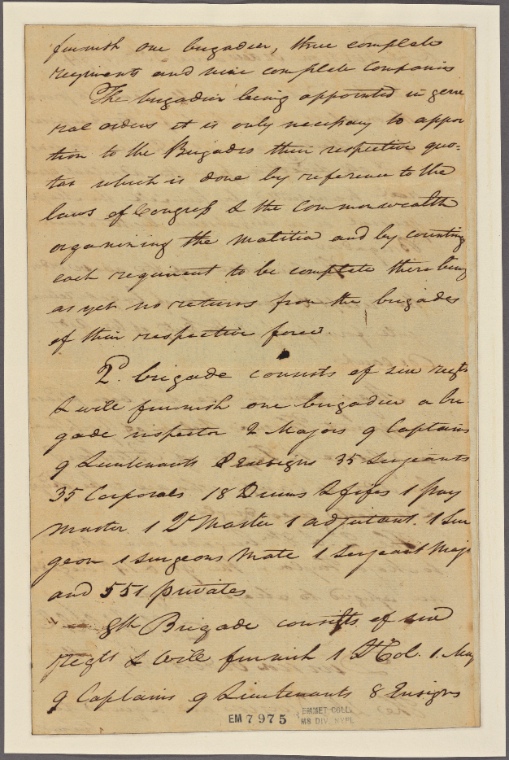 furnish one brigadier, three complete
regiments and nine complete Companies
The brigadier being appointed in gene
ral orders it is only necessary to appor
tion to the Brigades their respective quo-
tas which is done by reference to the
laws of Congress & the Commonwealth
organizing the malitia and by counting
each regiment to be complete there being
as yet no returns from the brigades
of their respective force
2d. brigade consists of six regts
& will furnish one brigadier a bri
gade inspector 2 Majors 9 Captains
9 Lieutenants 8 ensigns 35 Sergeants
35 Corporals 18 Drums & fifes 1 pay
master 1 Qr Master 1 adjutant. 1 Sur
geon 1 surgeons mate 1 Sergeant Maj
and 551 privates
8th Brigade consists of six
Regts & will furnish 1 Lt Col. 1 Maj
9 Captains 9 Lieutenants 8 Ensigns
EM 7975
EMMET COLL.
MS DIV. NYPL